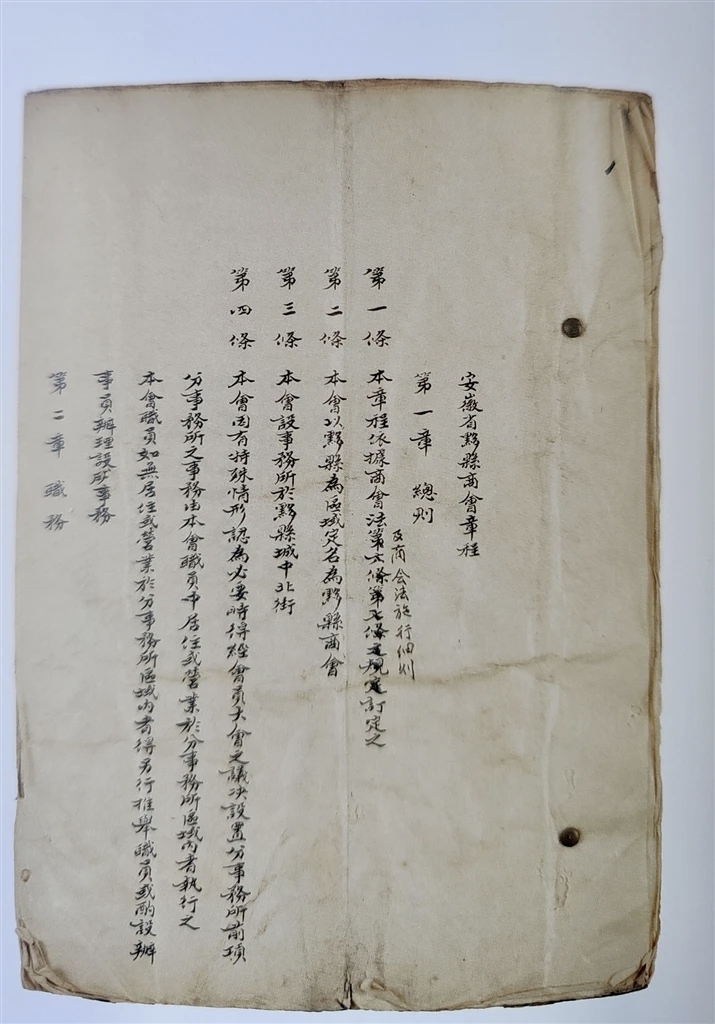 安徽省黟縣商會章程
第一章 總則
第一條 本章程依據商會法第六條第七條之規定訂定之
及商会法施行细则
第二條 本會以黟縣為區域定名為黟縣商會
第三條 本會設事務所於黟縣城中北街
第四條 本會因有特殊情形認為必要時得經會員大會之議决設置分事務所前項
分事務所之事務由本會職員中居住或營業於分事務所區域內者執行之
本會職員如無居住或營業於分事務所區域內者得另行推舉職員或酌設辦
事員辦理該所事務
第二章 職務